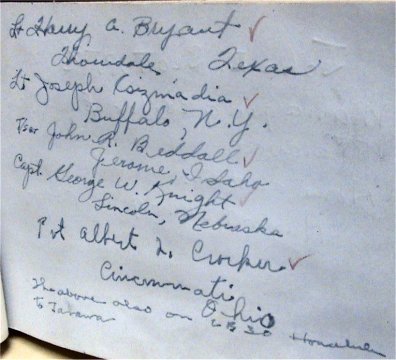 Lt Harry A. Bryant
Texas
Lt Joseph Kozmadia
Buffalo, N.Y.
John R. Beddall
Jerome, Idaho
Capt. George W. Knight
Lincoln, Nebraska
Pvt Albert L. Crocker
Cincinnati
Ohio
The above also on Honolulu
to Tarawa